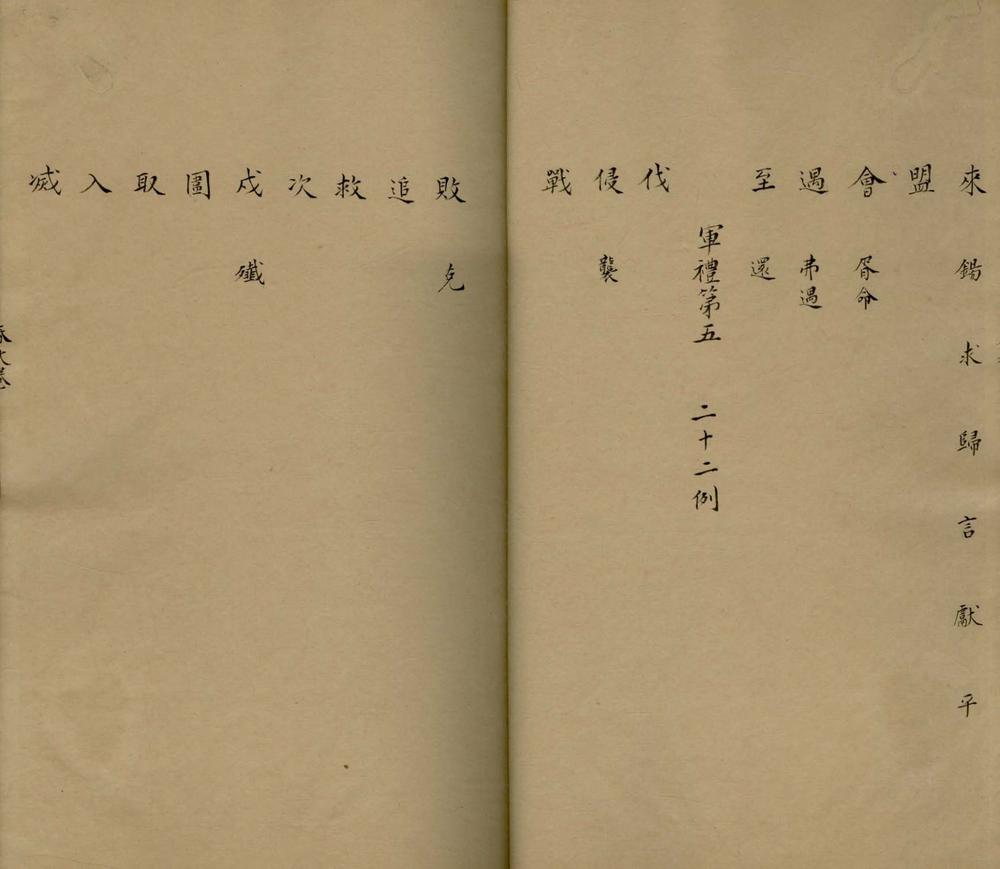 來 錫 求 歸 言 獻 平
盟
會 胥命
遇 弗遇
至 還
軍禮第五 二十二例
伐
侵 襲
戰
敗 克
追
救
次
戍 殲
圍
取
入
滅